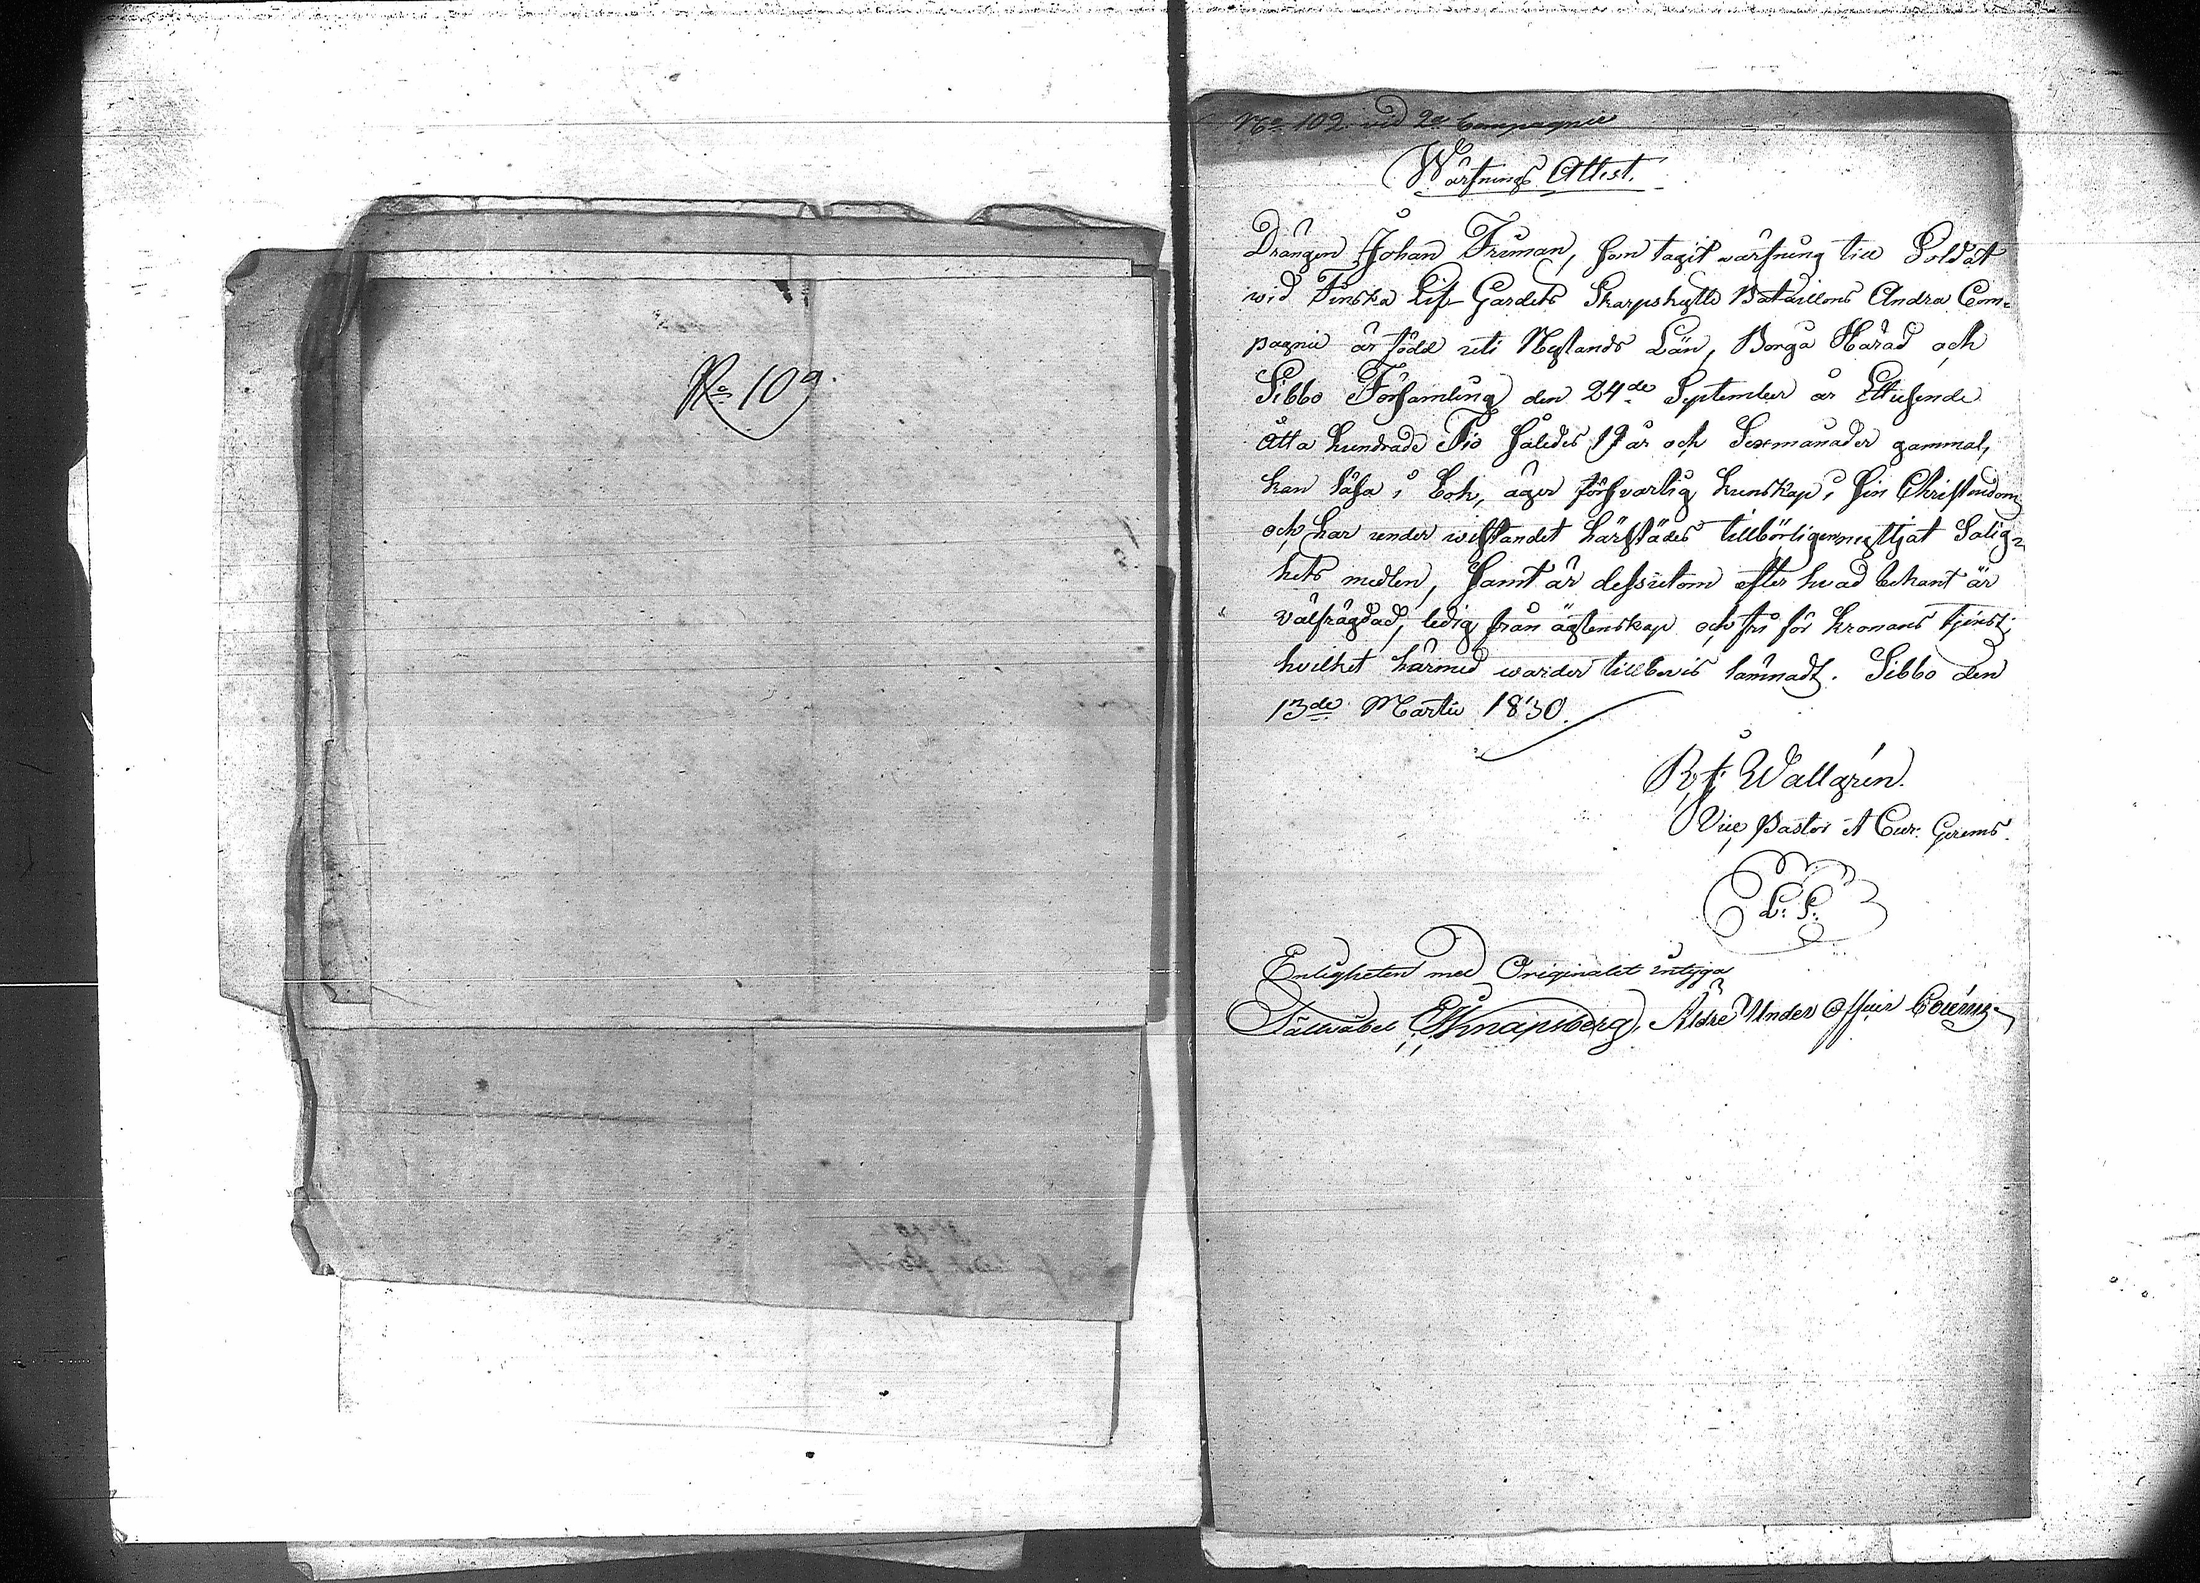 No 109.
No 102 vid 2a Compagnie
Wärfnings Attest.
Drängen Johan Friman, som tagit wärfning till Soldat
wid Finska Lif Gardets Skarpskytte Bataillons Andra Com-
pagnie är född uti Nylands Län, Borgå Härad och
Sibbo Församling den 24de September år Ettusende
Åtta hundrade Tio således 19 år och Sexmånader gammal,
kan läsa i bok, äger försvarlig kunskap i sin Christendom
och har under wistandet härstädes tillbörligen nyttjat Salig-
hets medlen, samt är dessutom efter hvad bekant är
välfrägdad, ledig från ägtenskap och fri för Kronans tjenst;
hvilket härmed warder till bevis lämnadt. Sibbo den
13de Martii 1830.
Wallgrén.
Vice Pastor
L. S.
Enligheten med Originalet intyga
Fältväbel Knapsberg, Äldre Under Officer